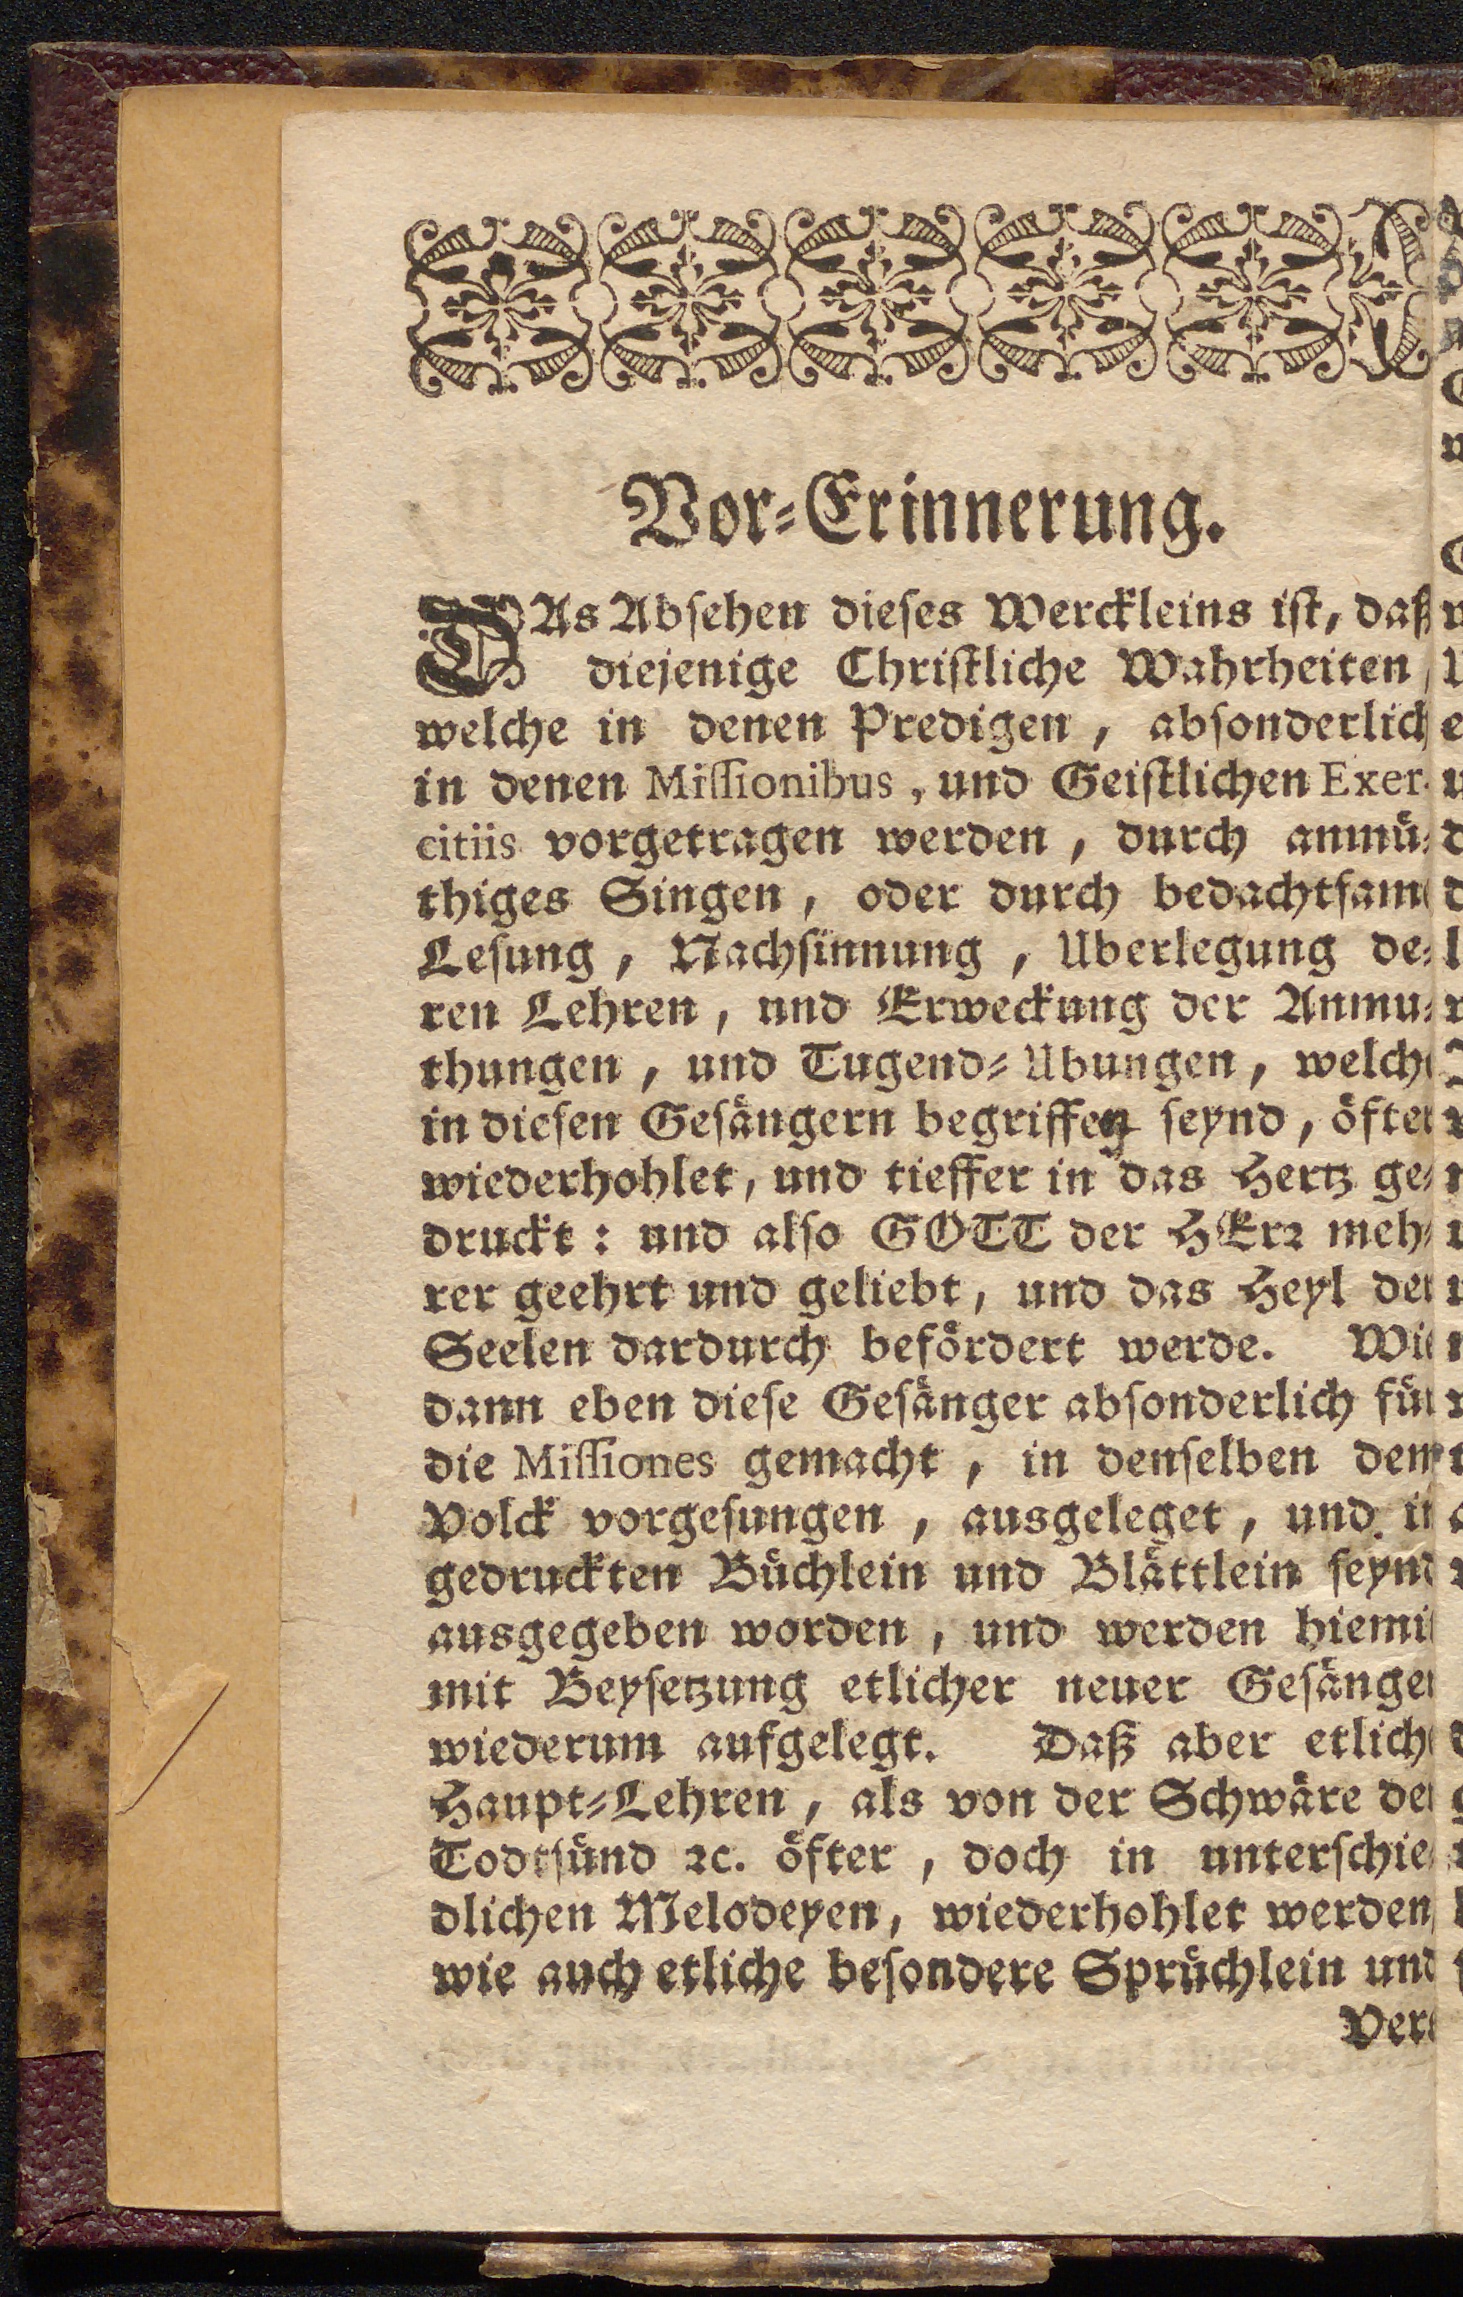 Vor-Erinnerung.
DAs Absehen dieses Werckleins ist, daß
diejenige Christliche Wahrheiten,
welche in denen Predigen, absonderlich
in denen Missionibus, und Geistlichen Exer-
citiis vorgetragen werden, durch anmü-
thiges Singen, oder durch bedachtsame
Lesung, Nachsinnung, Uberlegung de-
ren Lehren, und Erweckung der Anmu-
thungen, und Tugend-Ubungen, welche
in diesen Gesängern begriffen seynd, öfter
wiederhohlet, und tieffer in das Hertz ge-
druckt: und also GOTT der HErr meh-
rer geehrt und geliebt, und das Heyl der
Seelen dardurch befördert werde. Wie
dann eben diese Gesänger absonderlich für
die Missiones gemacht, in denselben dem
Volck vorgesungen, ausgeleget, und in
gedruckten Büchlein und Blättlein seynd
ausgegeben worden, und werden hiemit
mit Beysetzung etlicher neuer Gesänger
wiederum aufgelegt. Daß aber etliche
Haupt-Lehren, als von der Schwäre der
Todtsünd ꝛc. öfter, doch in unterschie-
dlichen Melodeyen, wiederhohlet werden,
wie auch etliche besondere Sprüchlein und
Ver-